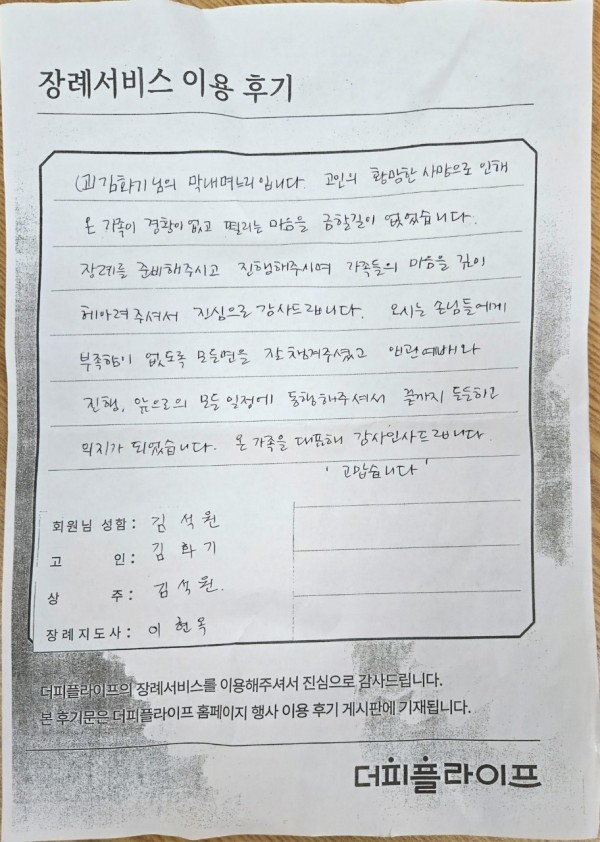 장례서비스 이용 후기
(고)김화기님의 막내며느리입니다. 고인의 황망한 사망으로 인해
온 가족이 경황이 없고 떨리는 마음을 금할길이 없었습니다.
장례를 준비해주시고 진행해주시며 가족들의 마음을 깊이
헤아려주셔서 진심으로 감사드립니다. 오시는 손님들에게
부족함이 없도록 모든면을 잘 챙겨주셨고 입관예배와
진행, 앞으로의 모든 일정에 동행해주셔서 끝까지 든든하고
의지가 되었습니다. 온 가족을 대표해 감사인사드립니다.
'고맙습니다'
회원님 성함 : 김석원
고 인 : 김화기
상 주 : 김석원.
장례지도사 : 이현옥
더피플라이프의 장례서비스를 이용해주셔서 진심으로 감사드립니다.
본 후기문은 더피플라이프 홈페이지 행사 이용 후기 게시판에 기재됩니다.
더피플라이프